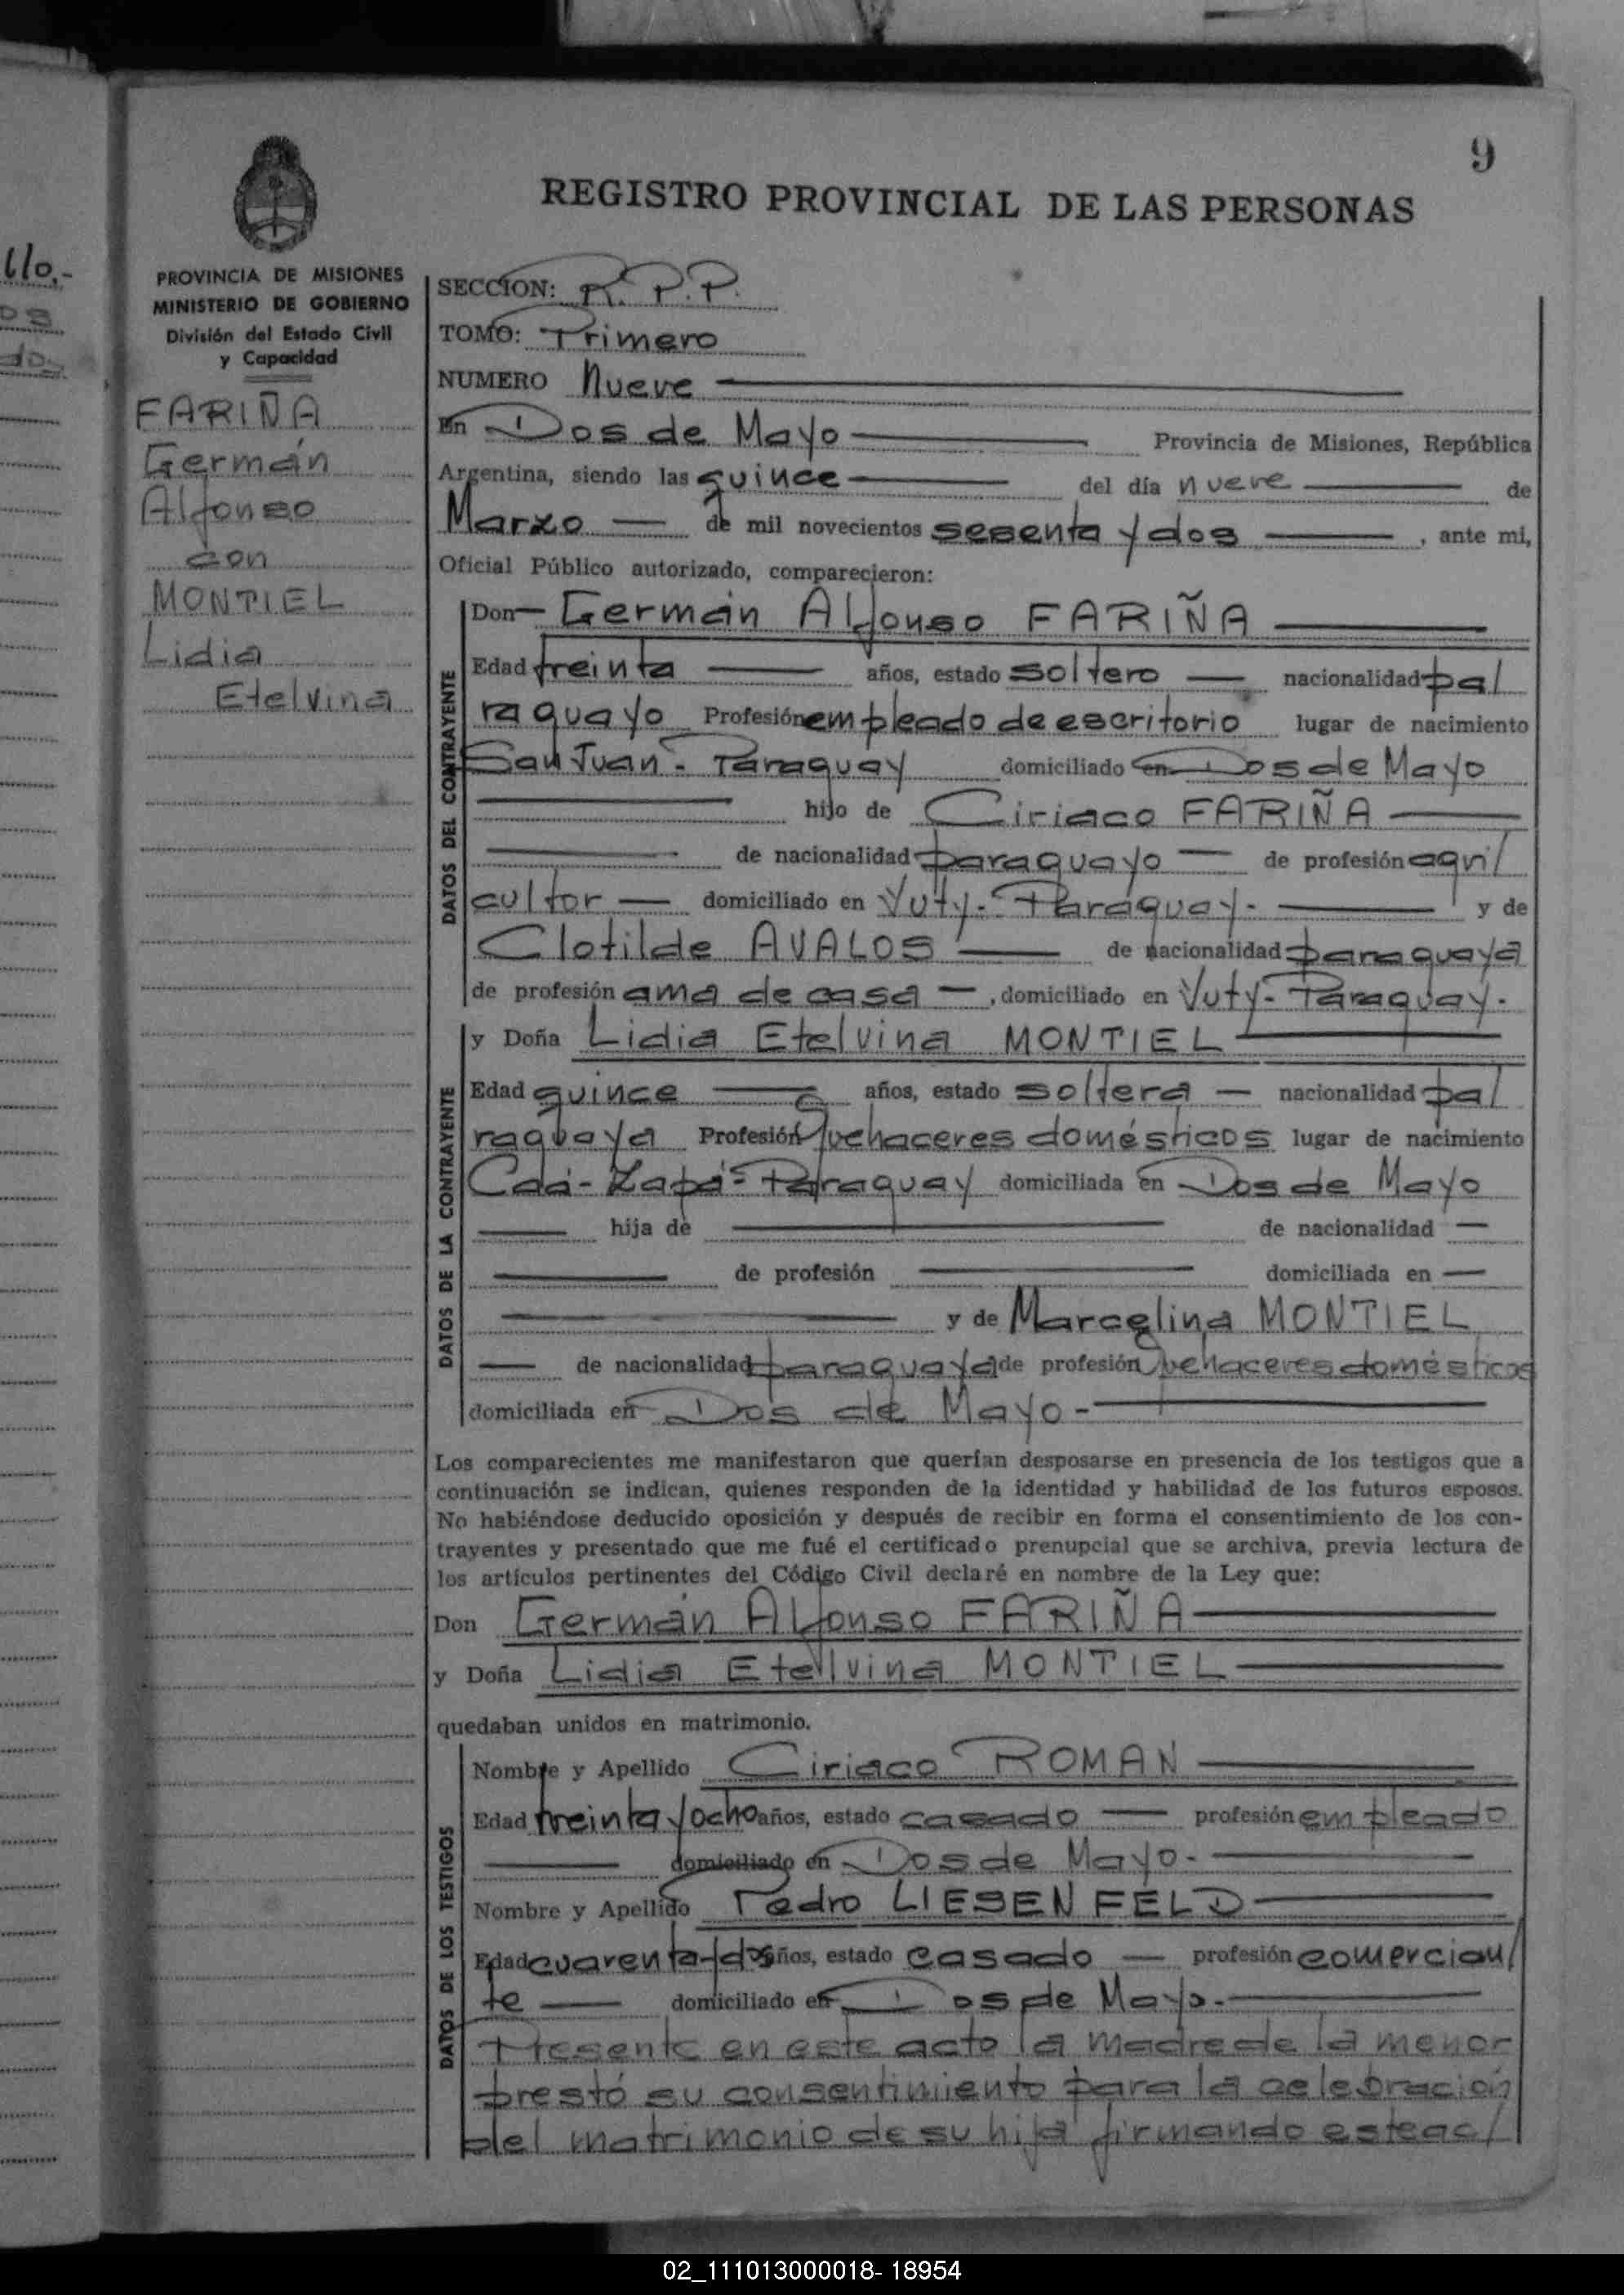 9
REGISTRO PROVINCIAL DE LAS PERSONAS
llo.-
PROVINCIA DE MISIONES
MINISTERIO DE GOBIERNO
División del Estado Civil
y Capacidad
FARIÑA
Germán
Alfonso
con
MONTIEL
Lidia
Etelvina
SECCION: R.P.P.
TOMO: Primero
NUMERO Nueve
En Dos de Mayo Provincia de Misiones, República
Argentina, siendo las quince del día nueve de
Marzo de mil novecientos sesenta y dos , ante mi,
Oficial Público autorizado, comparecieron:
DATOS DEL CONTRAYENTE
Don Germán Alfonso FARIÑA
Edad treinta años, estado soltero nacionalidad pa/
raguayo Profesión empleado de escritorio lugar de nacimiento
San Juan - Paraguay domiciliado en Dos de Mayo
hijo de Ciriaco FARIÑA
de nacionalidad paraguayo de profesión agri/
cultor domiciliado en Yuty - Paraguay.- y de
Clotilde AVALOS de nacionalidad paraguaya
de profesión ama de casa , domiciliado en Yuty - Paraguay.
DATOS DE LA CONTRAYENTE
y Doña Lidia Etelvina MONTIEL
Edad quince años, estado soltera nacionalidad pa/
raguaya Profesión Quehaceres domésticos lugar de nacimiento
Caá-Zapá-Paraguay domiciliada en Dos de Mayo
hija de de nacionalidad
de profesión domiciliada en
y de Marcelina MONTIEL
de nacionalidad paraguaya de profesión Quehaceres domésticos
domiciliada en Dos de Mayo.-
Los comparecientes me manifestaron que querían desposarse en presencia de los testigos que a
continuación se indican, quienes responden de la identidad y habilidad de los futuros esposos.
No habiéndose deducido oposición y después de recibir en forma el consentimiento de los con-
trayentes y presentado que me fué el certificado prenupcial que se archiva, previa lectura de
los artículos pertinentes del Código Civil declaré en nombre de la Ley que:
Don Germán Alfonso FARIÑA
y Doña Lidia Etelvina MONTIEL
quedaban unidos en matrimonio.
DATOS DE LOS TESTIGOS
Nombre y Apellido Ciriaco ROMAN
Edad treinta y ocho años, estado casado profesión empleado
domiciliado en Dos de Mayo.-
Nombre y Apellido Pedro LIESENFELD
Edad cuarenta y dos años, estado casado profesión comercian/
te domiciliado en Dos de Mayo.-
Presente en este acto la madre de la menor
prestó su consentimiento para la celebración
del matrimonio de su hija firmando este ac/
02_111013000018-18954